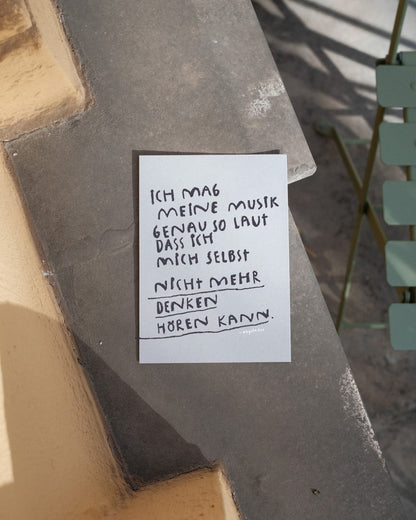 ICH MAG
MEINE MUSIK
GENAU SO LAUT
DASS ICH
MICH SELBST
NICHT MEHR
DENKEN
HÖREN KANN.